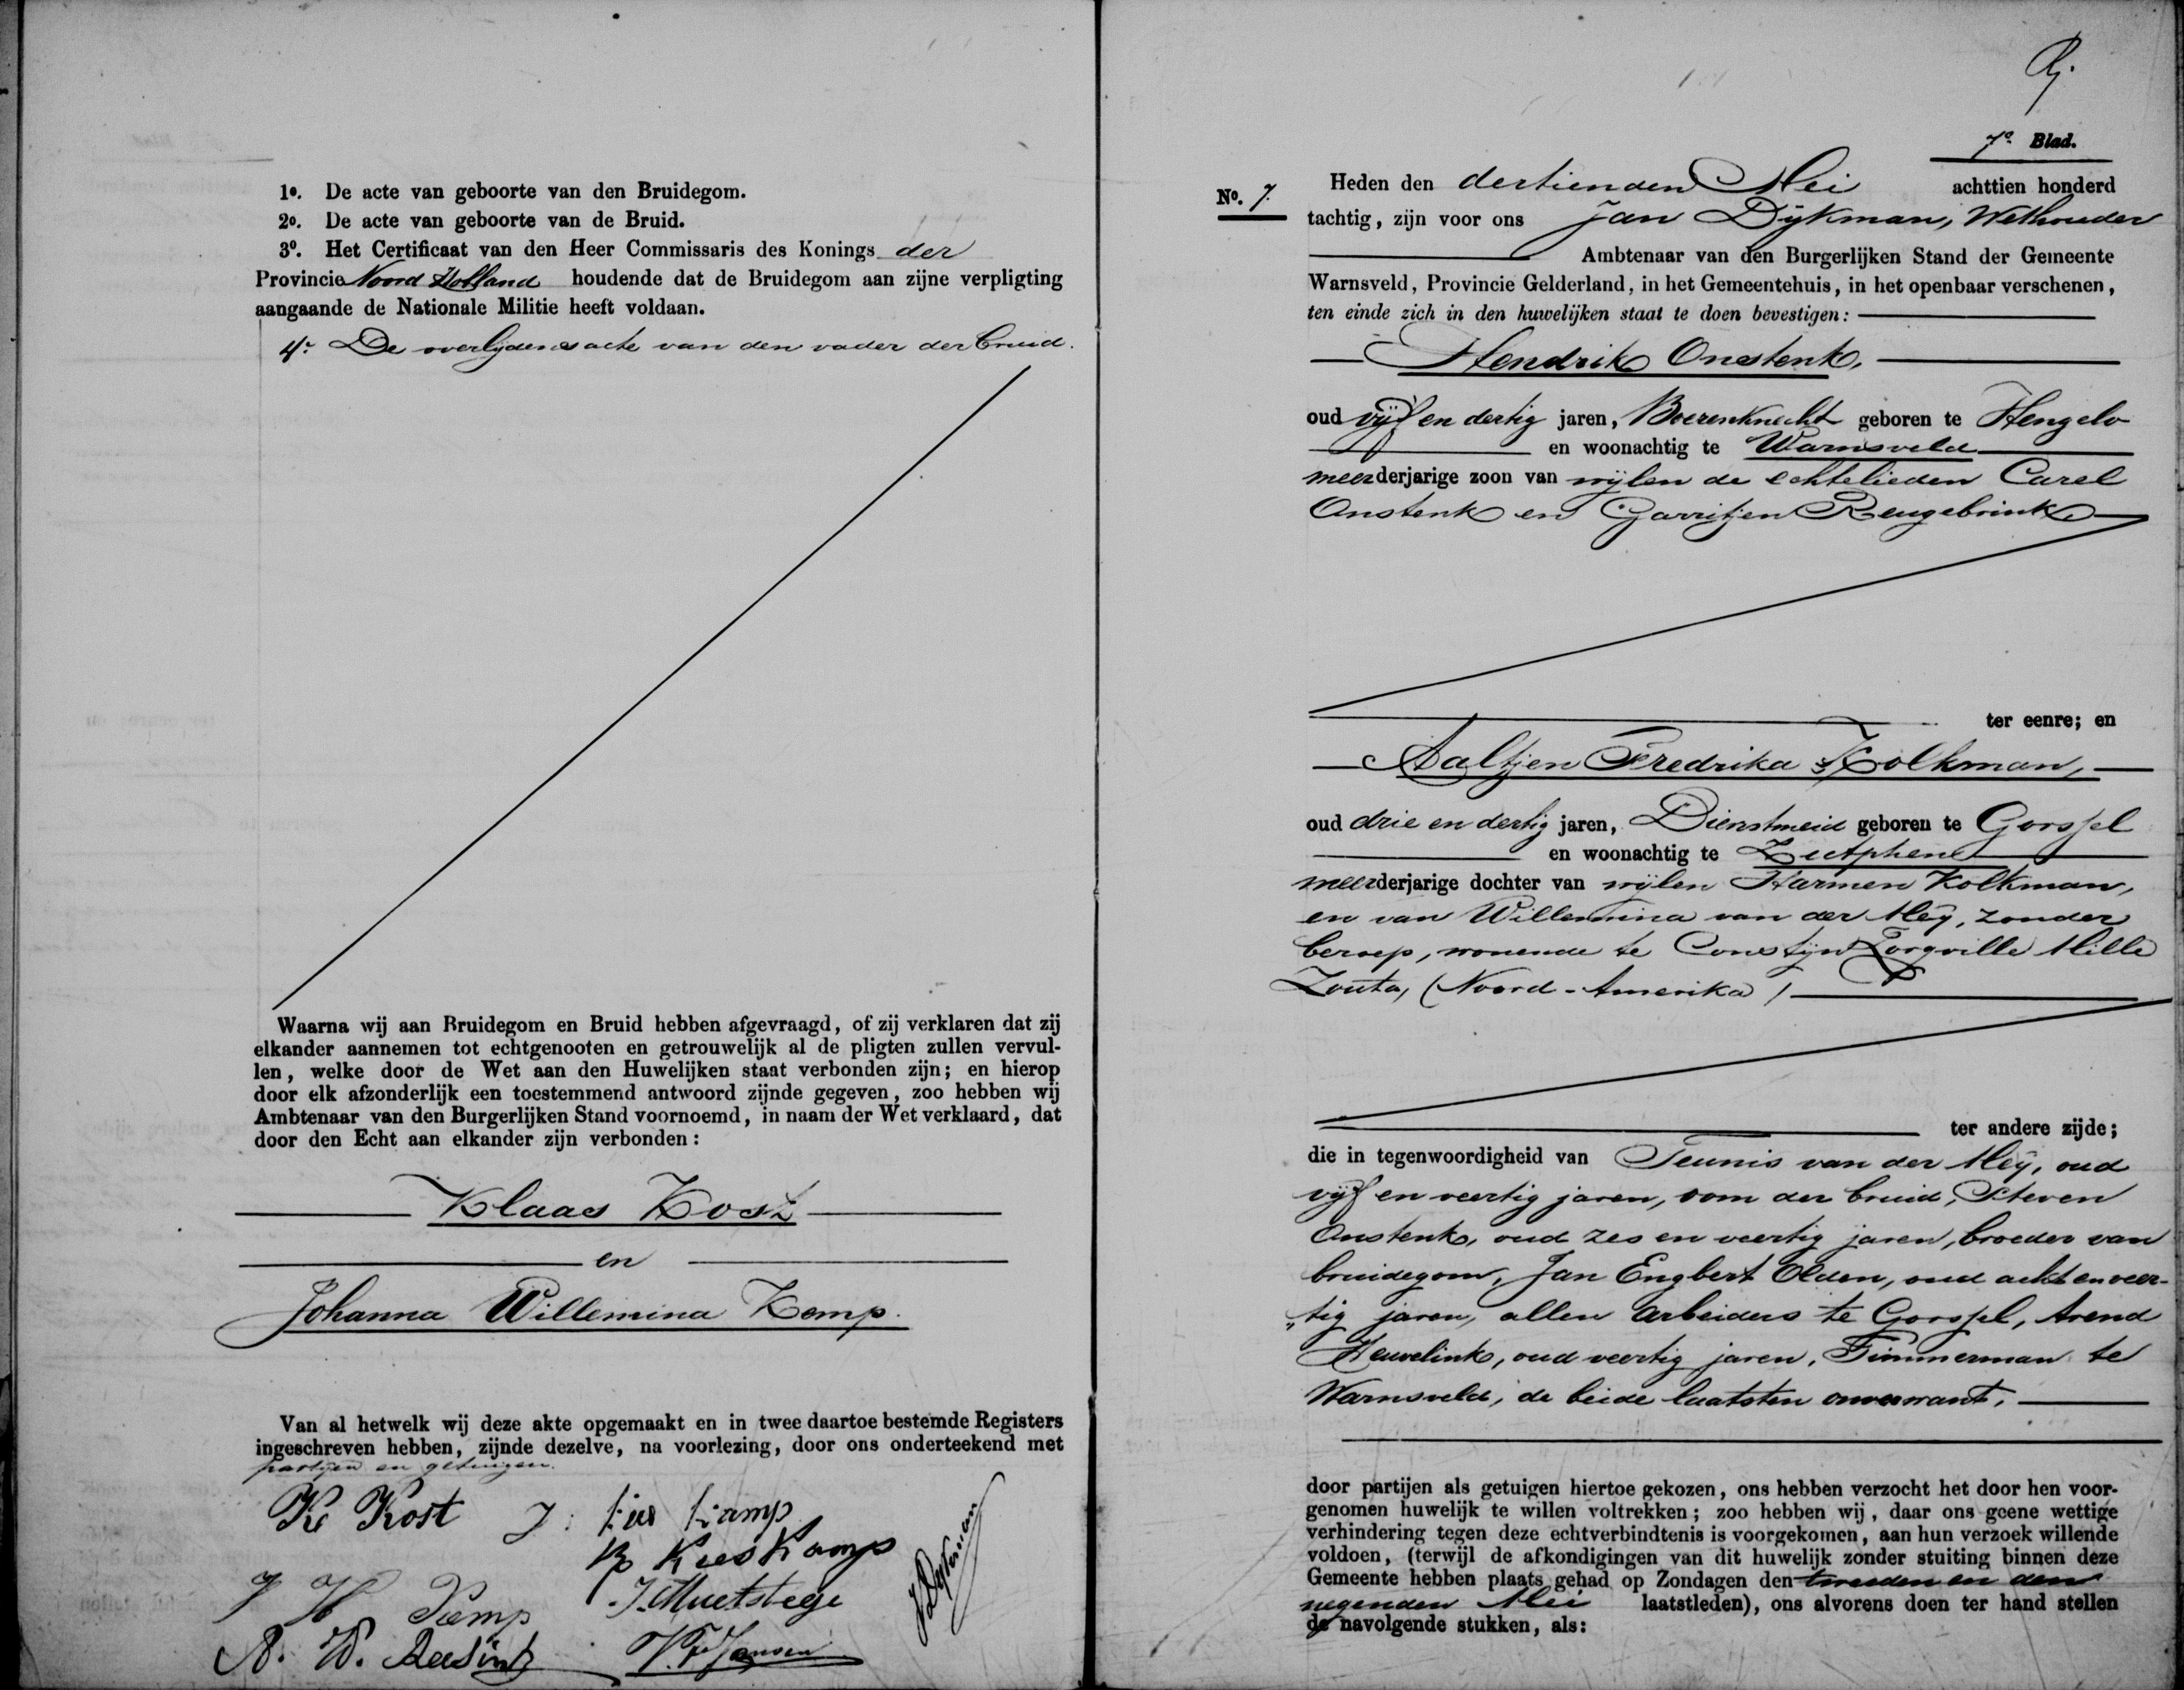 1o. De acte van geboorte van den Bruidegom.
2o. De acte van geboorte van de Bruid.
3o. Het Certificaat van den Heer Commissaris des Konings der
Provincie Noord Holland houdende dat de Bruidegom aan zijne verpligting
aangaande de Nationale Militie heeft voldaan.
4o. De overlijdens acte van den vader der bruid.
Waarna wij aan Bruidegom en Bruid hebben afgevraagd, of zij verklaren dat zij
elkander aannemen tot echtgenooten en getrouwelijk al de pligten zullen vervul-
len, welke door de Wet aan den Huwelijken staat verbonden zijn; en hierop
door elk afzonderlijk een toestemmend antwoord zijnde gegeven, zoo hebben wij
Ambtenaar van den Burgerlijken Stand voornoemd, in naam der Wet verklaard, dat
door den Echt aan elkander zijn verbonden:
Klaas Kost
en
Johanna Willemina Kemp.
Van al hetwelk wij deze akte opgemaakt en in twee daartoe bestemde Registers
ingeschreven hebben, zijnde dezelve, na voorlezing, door ons onderteekend met
partijen en getuigen.
K. Kost
Kees Kamp
J H Kemp
J. Muetstege
JDykman
N. W. Reesink
Jansen
7e Blad.
No. 7.
Heden den dertienden Mei achttien honderd
tachtig, zijn voor ons Jan Dijkman, Wethouder
Ambtenaar van den Burgerlijken Stand der Gemeente
Warnsveld, Provincie Gelderland, in het Gemeentehuis, in het openbaar verschenen,
ten einde zich in den huwelijken staat te doen bevestigen:
Hendrik Onstenk,
oud vijf en dertig jaren, Boerenknecht geboren te Hengelo
en woonachtig te Warnsveld
meerderjarige zoon van wijlen de echtelieden Carel
Onstenk en Garritjen Reugebrink
ter eenre; en
Aaltjen Fredrika Kolkman,
oud drie en dertig jaren, Dienstmeid geboren te Gorssel
en woonachtig te Zutphen
meerderjarige dochter van wijlen Harmen Kolkman,
en van Willemina van der Meij, zonder
beroep, wonende te Constijn Torgville Mille
Zouta, (Noord-Amerika)
ter andere zijde;
die in tegenwoordigheid van Teunis van der Meij, oud
vijf en veertig jaren, oom der bruid, Steven
Onstenk, oud zes en veertig jaren, broeder van
bruidegom, Jan Engbert Olden, oud acht en veer-
„tig jaren, allen arbeiders te Gorssel, Arend
Heuvelink, oud veertig jaren, Timmerman te
Warnsveld, de beide laatsten onverwant,
door partijen als getuigen hiertoe gekozen, ons hebben verzocht het door hen voor-
genomen huwelijk te willen voltrekken; zoo hebben wij, daar ons geene wettige
verhindering tegen deze echtverbindtenis is voorgekomen, aan hun verzoek willende
voldoen, (terwijl de afkondigingen van dit huwelijk zonder stuiting binnen deze
Gemeente hebben plaats gehad op Zondagen den tweeden en den
negenden Mei laatstleden), ons alvorens doen ter hand stellen
de navolgende stukken, als: